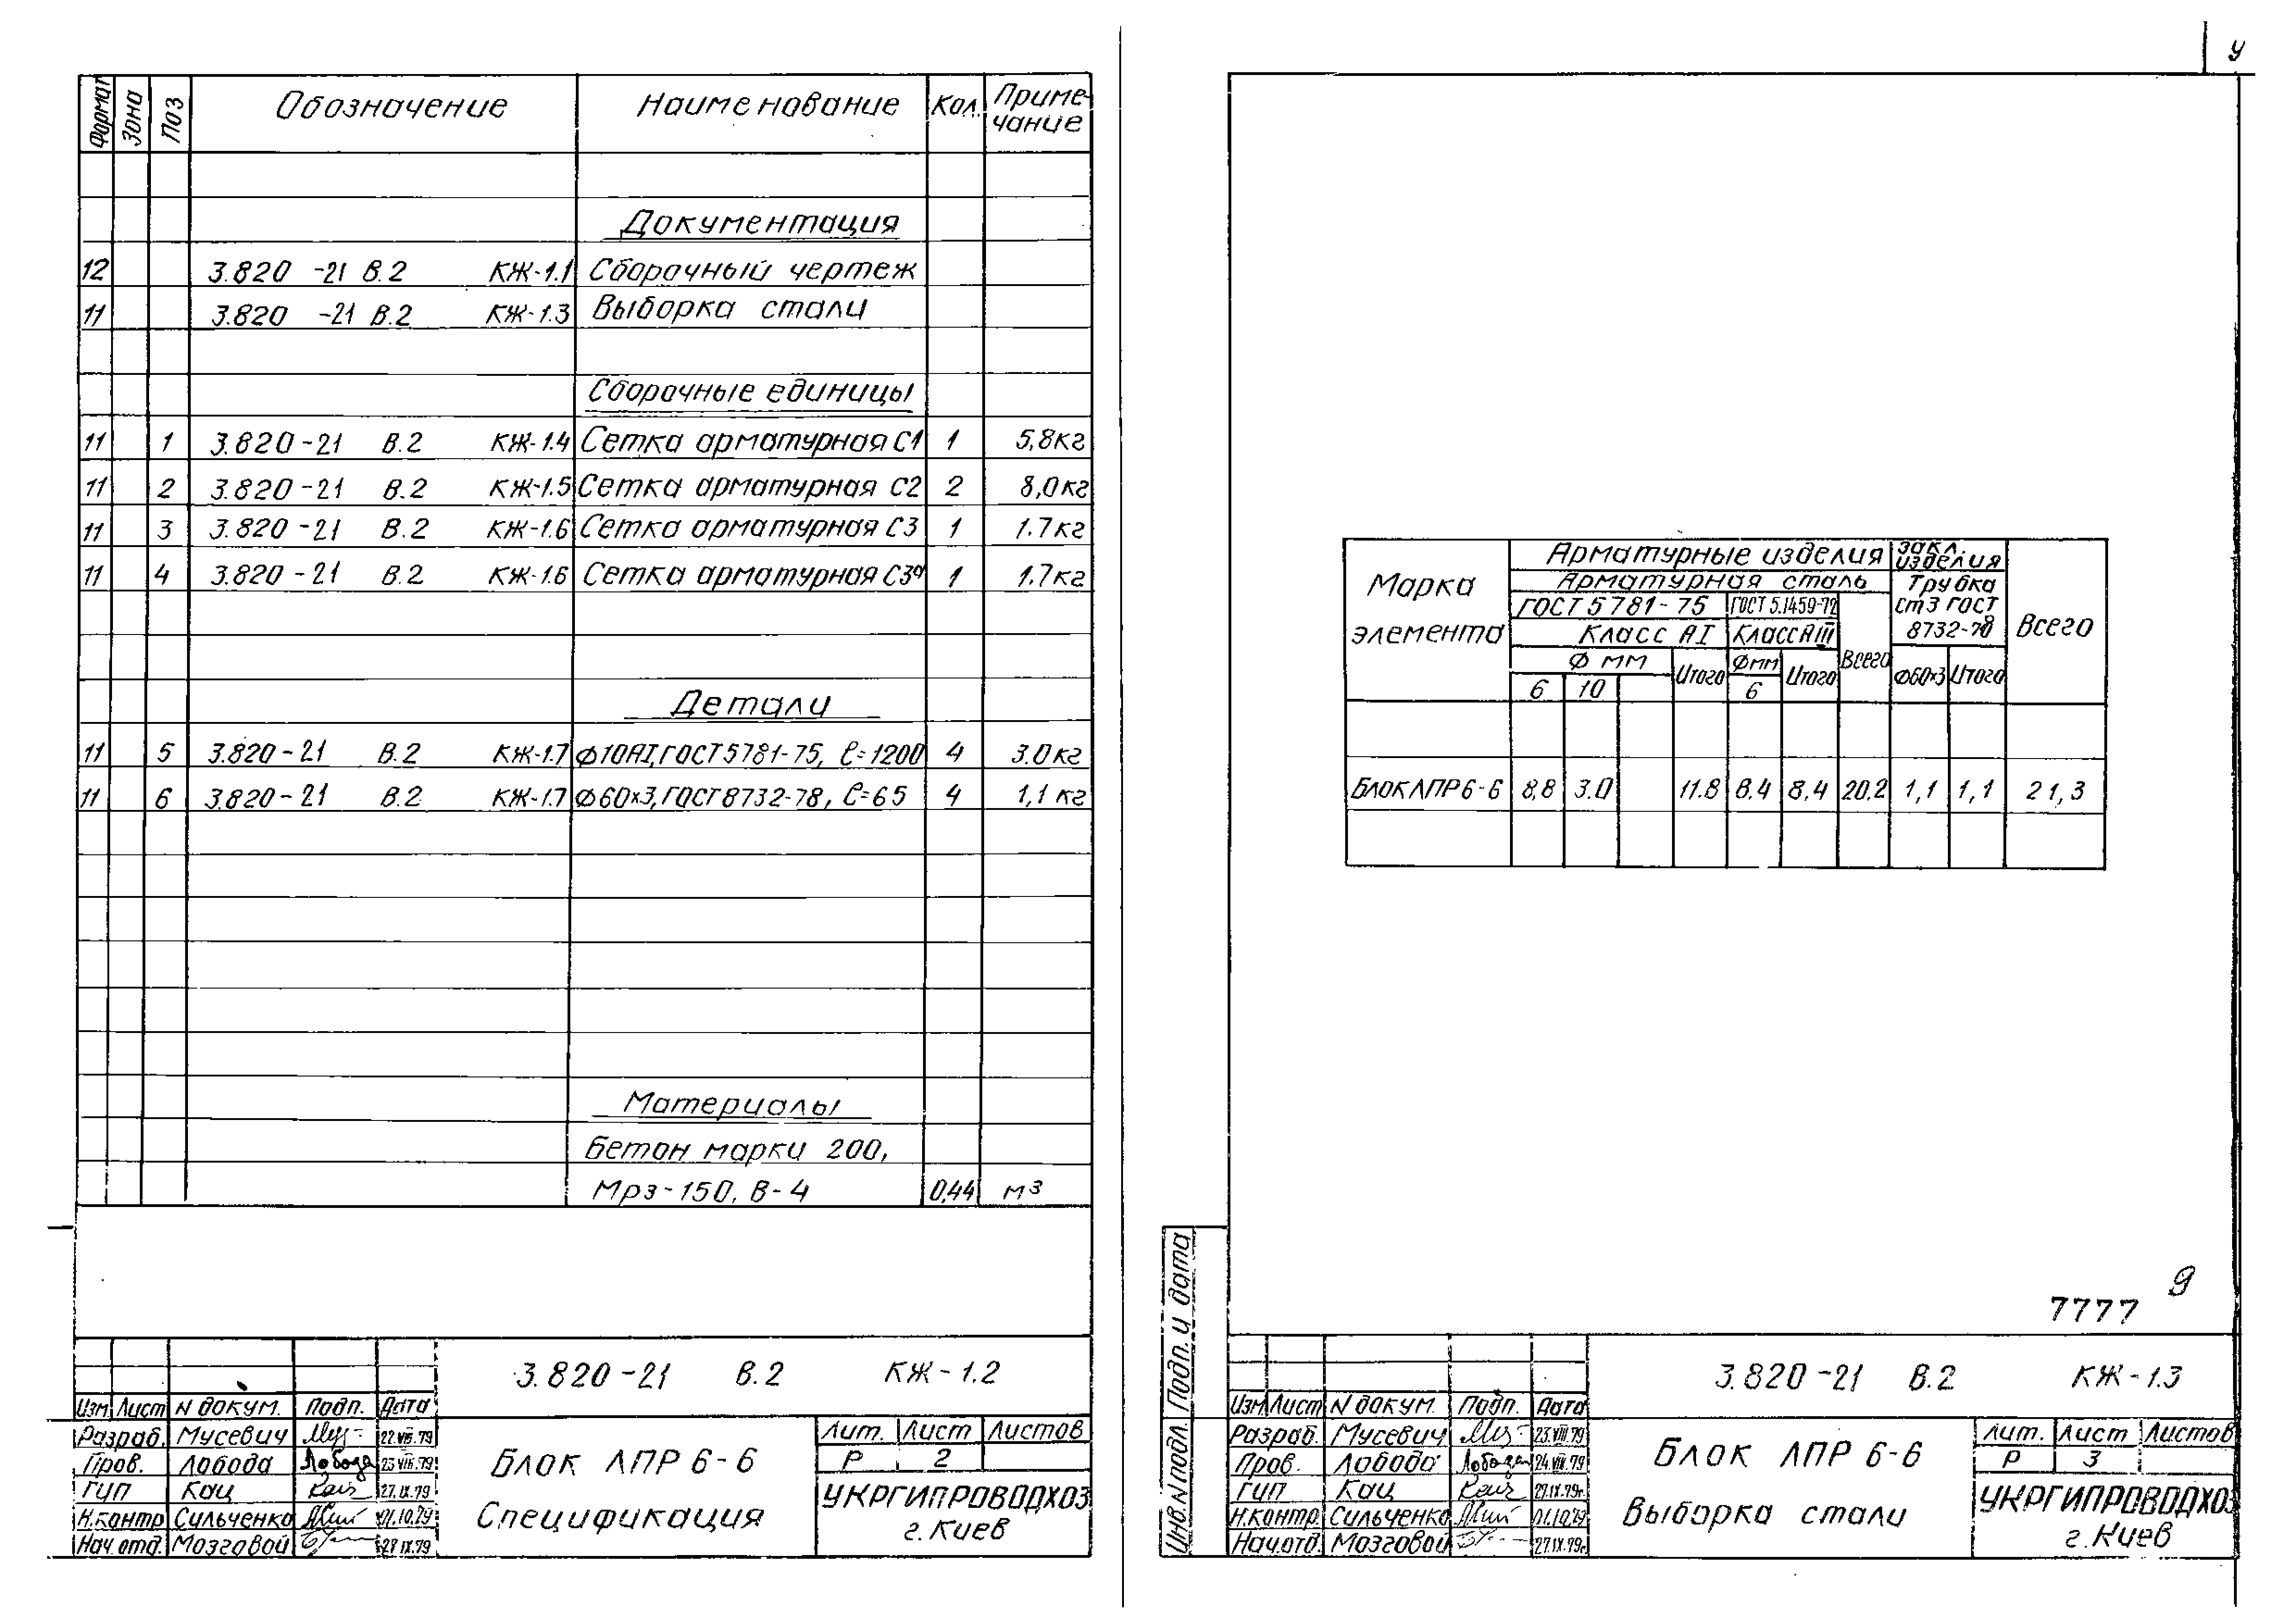 Формат Зона Поз Обозначение Наименование Кол. Приме-
чание
Документация
12 3.820 -21 В.2 КЖ-1.1 Сборочный чертеж
11 3.820 -21 В.2 КЖ-1.3 Выборка стали
Сборочные единицы
11 1 3.820-21 В.2 КЖ-1.4 Сетка арматурная С1 1 5,8кг
11 2 3.820-21 В.2 КЖ-1.5 Сетка арматурная С2 2 8,0кг
11 3 3.820-21 В.2 КЖ-1.6 Сетка арматурная С3 1 1.7кг
11 4 3.820-21 В.2 КЖ-1.6 Сетка арматурная С3а 1 1.7кг
Детали
11 5 3.820-21 В.2 КЖ-1.7 Ф10АI, ГОСТ 5781-75, ℓ=1200 4 3.0кг
11 6 3.820-21 В.2 КЖ-1.7 Ф60×3, ГОСТ 8732-78, ℓ=65 4 1,1 кг
Материалы
Бетон марки 200,
Мрз-150, В-4 0,44 м3
3.820-21 В.2 КЖ-1.2
Изм. Лист N докум. Подп. Дата
Разраб. Мусевич 22.VIII.79
Пров. Лобода Лобода 23.VIII.79
Гип Кац Кац 27.IX.79
Н.контр Сильченко 01.10.79
Нач.отд. Мозговой 28.IX.79
Блок ЛПР 6-6
Спецификация
Лит. Лист Листов
Р 2
УКРГИПРОВОДХОЗ
г. Киев
У
Марка
элемента
Арматурные изделия
Арматурная сталь
ГОСТ 5781-75 ГОСТ 5.1459-72
Класс АI Класс АIII
Ф мм Итого Фмм Итого Всего
6 10 6
Закл.
изделия
Трубка
ст3 ГОСТ
8732-78
Ф60×3 Итого
Всего
Блок ЛПР 6-6 8,8 3.0 11.8 8.4 8,4 20.2 1,1 1,1 21,3
9
7777
Инв. N подл. Подп. и дата
3.820-21 В.2 КЖ-1.3
Изм. Лист N докум. Подп. Дата
Разраб. Мусевич 23.VIII.79
Пров. Лобода Лобода 24.VIII.79
Гип Кац Кац 27.IX.79г.
Н.контр. Сильченко 01.10.79
Нач.отд. Мозговой 27.IX.79г.
Блок ЛПР 6-6
Выборка стали
Лит. Лист Листов
Р 3
УКРГИПРОВОДХОЗ
г. Киев